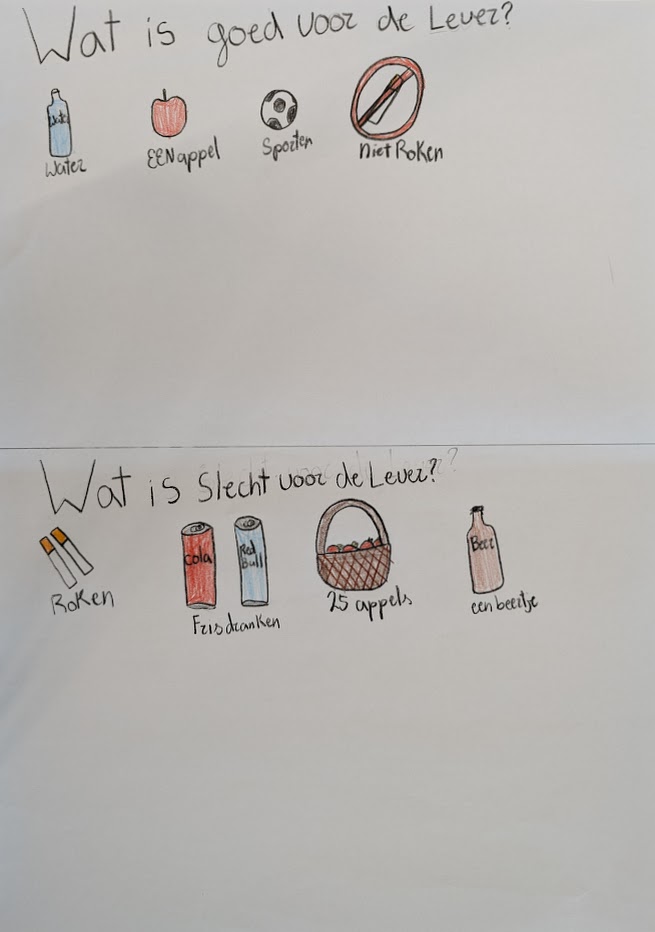 Wat is goed voor de Lever?
Water
Water EEN appel Sporten niet Roken
Wat is Slecht voor de Lever?
Cola Red Bull Beer
Roken Frisdranken 25 appels een beertje